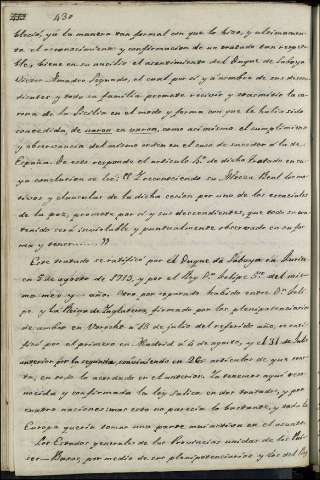 430
blecio, yá la manera tan formal con que lo hizo, y ultimamen-
te el reconocimiento y confirmacion de un tratado tan respeta-
ble, viene en su auxilio el asentimiento del Duque de Saboya
Victor Amadeo Segundo, el cual por sí y á nombre de sus descen-
dientes y toda su familia promete recivir y trasmitir la co-
rona de la Sicilia en el modo y forma con que le habia sido
concedida, de varon en varon, como asi mismo el cumplimiento
y observancia del mismo orden en el caso de suceder á la de
España. De esto responde el articulo 14 de dicho tratado en cu-
ya conclusion se lee: "Y reconociendo su Alteza Real los mo-
tivos y clausulas de la dicha cesion por uno de los esenciales
de la paz, promete por sí y sus descendientes, que todo su con-
tenido será inviolable y puntualmente observado en su for-
ma y tenor........"
Este tratado se ratificó por el Duque de Saboya en Turin
en 5 de agosto de 1713, y por el Rey Dn. Felipe 5º del mis-
mo mes y año. Otro, por separado habido entre Dn. Feli-
pe y la Reina de Inglaterra, firmado por los plenipotenciarios
de ambos en Utrecht á 13 de julio del referido año, se ratifi-
có por el primero en Madrid á 4 de agosto, y el 31 de Julio
anterior por la segunda, conviniendo en 26 articulos de que cons-
ta, en todo lo acordado en el anterior. Ya tenemos aqui reco-
nocida y confirmada la ley Salica en dos tratados, y por
cuatro naciones: mas esto no parecia lo bastante, y toda la
Europa queria tomar una parte muy activa en el asunto.
Los Estados generales de las Provincias unidas de los Pai-
ses-Bajos, por medio de sus plenipotenciarios y los del Rey